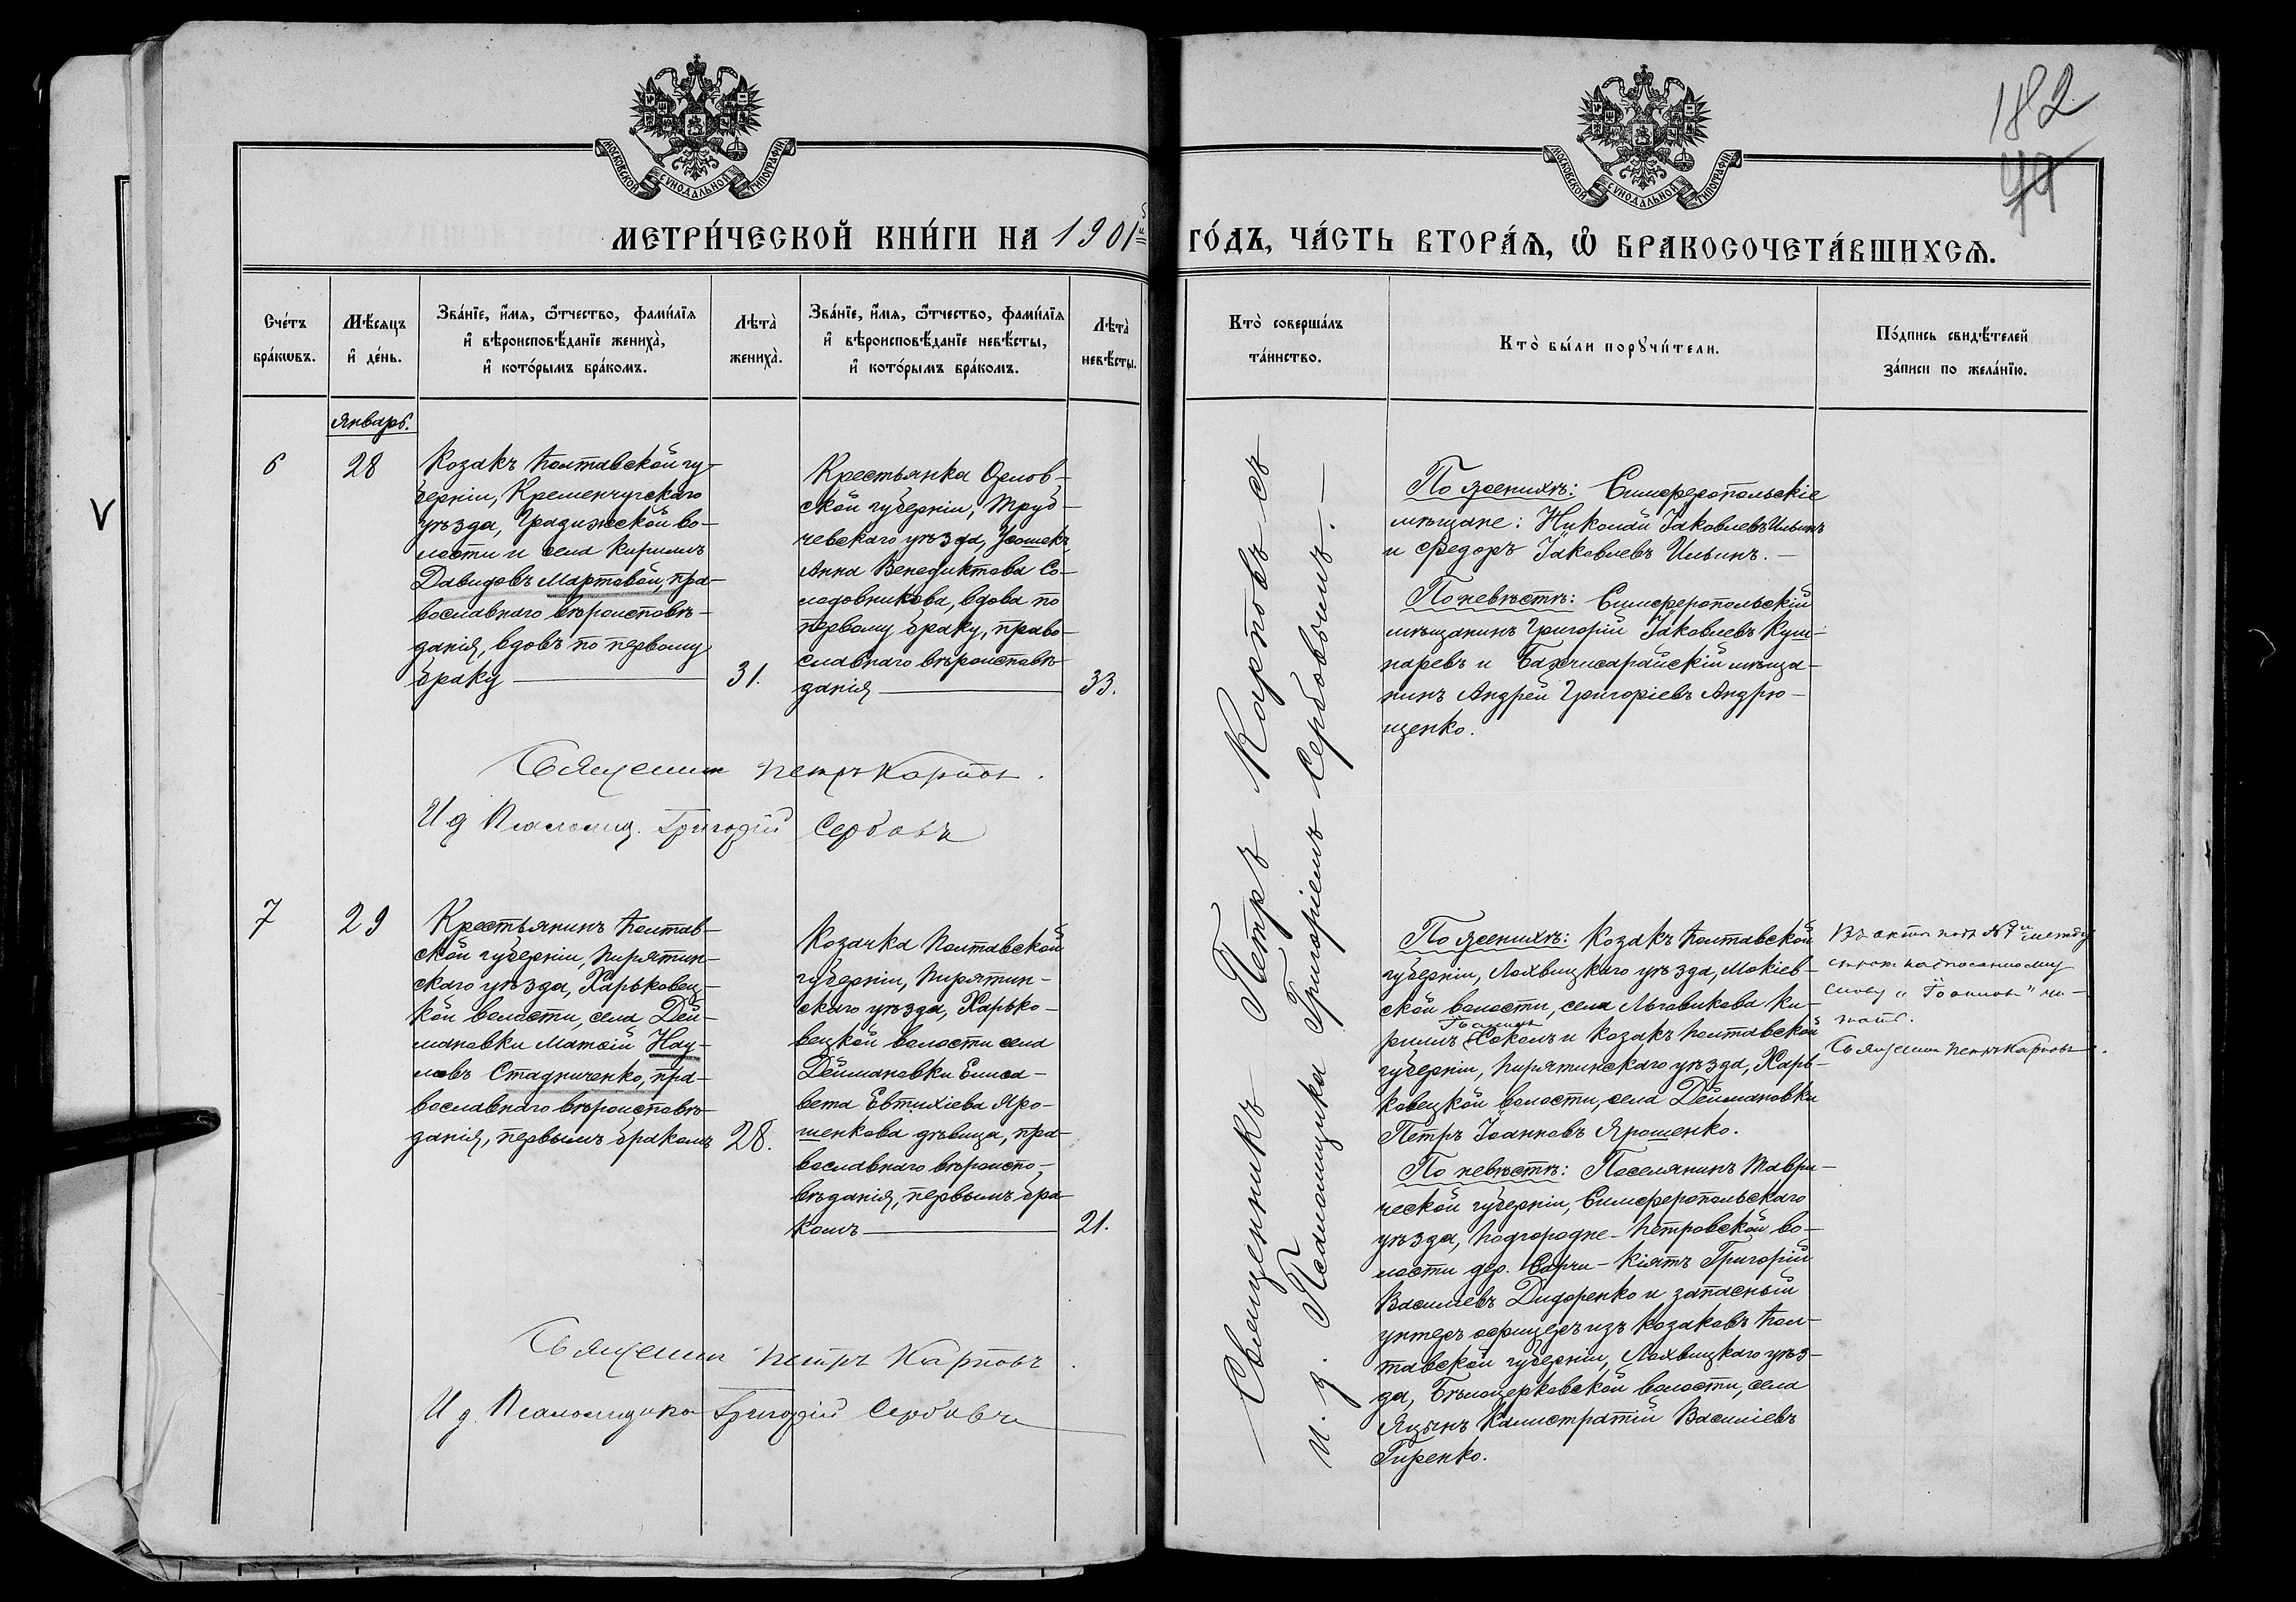 182
74
МОСКОВСКОЙ СѴНОДАЛЬНОЙ ТИПОГРАФІИ
МОСКОВСКОЙ СѴНОДАЛЬНОЙ ТИПОГРАФІИ
МЕТРИ́ЧЕСКОЙ КНИ́ГИ НА 1901й ГО́ДЪ, ЧА́СТЬ ВТОРА́Ѧ, Ѡ҆ БРАКОСОЧЕТА́ВШИХСѦ.
Сче́тъ
бра́кѡвъ.
Мѣ́сяцъ
и҆ де́нь.
Зва́нїе, и҆́мѧ, ѻ҆́тчество, фами́лїѧ
и҆ вѣроисповѣ́данїе жениха̀,
и҆ кото́рымъ бра́комъ.
Лѣта̀
жениха̀.
Зва́нїе, и҆́мѧ, ѻ҆́тчество, фами́лїѧ
и҆ вѣроисповѣ́данїе невѣ́сты,
и҆ кото́рымъ бра́комъ.
Лѣта̀
невѣ́сты.
Кто̀ соверша́лъ
та́инство.
Кто̀ бы́ли порꙋчи́тели.
По́дпись свидѣ́телей
за́писи по жела́нїю.
Январь.
6
28
Козакъ Полтавской гу-
берніи, Кременчугскаго
уѣзда, Градижской во-
лости и села Кириллъ
Давидовъ Мартовой, пра-
вославнаго вѣроисповѣ-
данія, вдовъ по первому
браку
31.
Крестьянка Орлов-
ской губерніи, Труб-
чевскаго уѣзда,
Анна Венедиктова Со-
лодовникова, вдова по
первому браку, право-
славнаго вѣроисповѣ-
данія
33.
По женихѣ: Симферопольскіе
мѣщане: Николай Іаковлевъ Ильинъ
и Федоръ Іаковлевъ Ильинъ.
По невѣстѣ: Симферопольскій
мѣщанинъ Григорій Іаковлевъ Куш-
наревъ и Бахчисарайскій мѣща-
нинъ Андрей Григоріевъ Андрю-
щенко.
Священник Петръ Карпов.
И д Псаломщ. Григорій Сербовъ
Священникъ Петръ Карповъ съ
и. д. Псаломщика Григоріемъ Сербовымъ.
7
29
Крестьянинъ Полтав-
ской губерніи, Пирятин-
скаго уѣзда, Харьковец-
кой волости, села Дей-
мановки Матѳій Нау-
мовъ Стадниченко, пра-
вославнаго вѣроисповѣ-
данія, первымъ бракомъ
28.
Козачка Полтавской
губерніи, Пирятин-
скаго уѣзда, Харько-
вецкой волости села
Деймановки Елиса-
вета Евтихіева Яро-
шенкова дѣвица, пра-
вославнаго вѣроиспо-
вѣданія, первымъ бра-
комъ
21.
По женихѣ: Козакъ Полтавской
губерніи, Лохвицкаго уѣзда, Мокіев-
ской волости, села Ки-
Іоанновъ
риллъ Соколъ и Козакъ Полтавской
губерніи, Пирятинскаго уѣзда, Харь-
ковецкой волости, села Деймановки
Петръ Іоанновъ Ярошенко.
По невѣстѣ: Поселянинъ Таври-
ческой губерніи, Симферопольскаго
уѣзда, Подгородне-Петровской во-
лости дер. Сарчи-Кіятъ Григорій
Василіевъ Дидоренко и запасный
унтеръ офицеръ изъ козаковъ Пол-
тавской губерніи, Лохвицкаго уѣз-
да, Бѣлоцерковской волости, села
Яцынъ Каллистратій Василіевъ
Гиренко.
Въ актѣ подъ №7й между
строк надписанному
слову „Іоаннов" чи-
тать.
Священник Петръ Карповъ.
Священник Петръ Карповъ
И д. Псаломщика Григорій Сербовъ